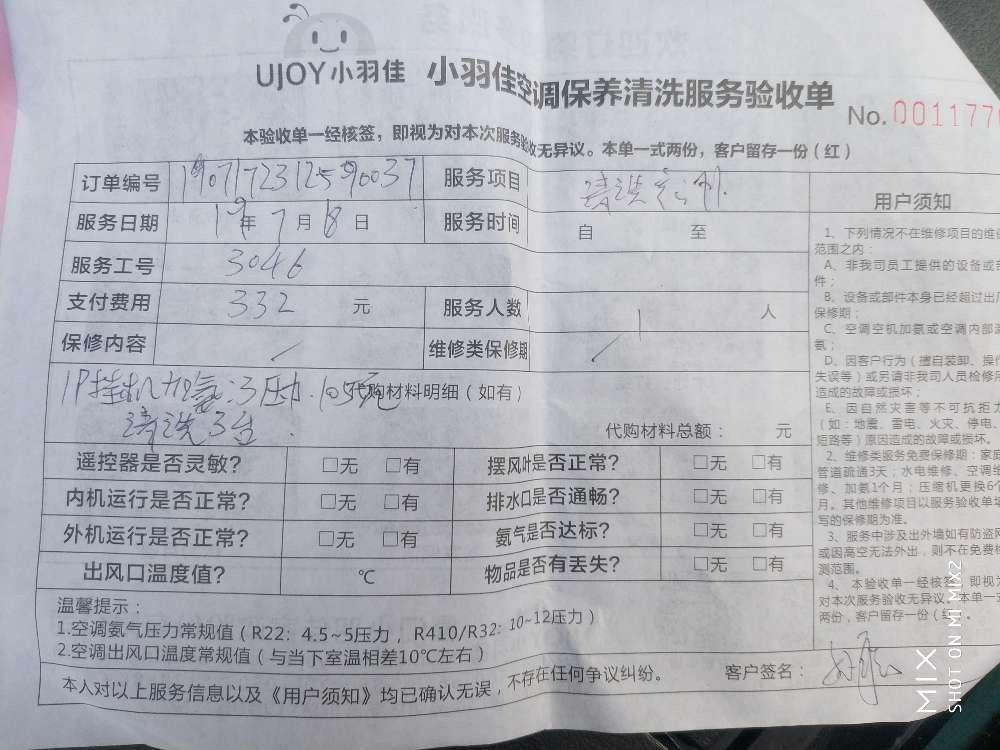 UJOY小羽佳 小羽佳空调保养清洗服务验收单
No. 0011770
本验收单一经核签，即视为对本次服务验收无异议。本单一式两份，客户留存一份（红）
订单编号 19071723125990037 服务项目
服务日期 19年 7月 18日 服务时间 自 至
服务工号 3046
支付费用 332 元 服务人数 1 人
保修内容 / 维修类保修期 /
1P挂机加氨:3压力.105元 代购材料明细（如有）
清洗3台. 代购材料总额： 元
遥控器是否灵敏? □无 □有 摆风叶是否正常? □无 □有
内机运行是否正常? □无 □有 排水口是否通畅? □无 □有
外机运行是否正常? □无 □有 氨气是否达标? □无 □有
出风口温度值? ℃ 物品是否有丢失? □无 □有
温馨提示：
1.空调氨气压力常规值（R22：4.5~5压力，R410/R32: 10~12压力）
2.空调出风口温度常规值（与当下室温相差10℃左右）
本人对以上服务信息以及《用户须知》均已确认无误，不存在任何争议纠纷。 客户签名：
用户须知
1、下列情况不在维修项目的维修
范围之内：
A、非我司员工提供的设备或
件；
B、设备或部件本身已经超过出厂
保修期；
C、空调空机加氨或空调内部漏
氨；
D、因客户行为（擅自装卸、操作
失误等）或另请非我司人员检修所
造成的故障或损坏；
E、因自然灾害等不可抗拒力
（如：地震、雷电、火灾、停电、
短路等）原因造成的故障或损坏。
2、维修类服务免费保修期：家庭
管道疏通3天；水电维修、空调维
修、加氨1个月；压缩机更换6个
月。其他维修项目以服务验收单填
写的保修期为准。
3、服务中涉及出外墙如有防盗网
或因高空无法外出，则不在免费检
测范围。
4、本验收单一经核签，即视为
对本次服务验收无异议。本单一式
两份，客户留存一份（红）。
MIX
SHOT ON MI MIX2